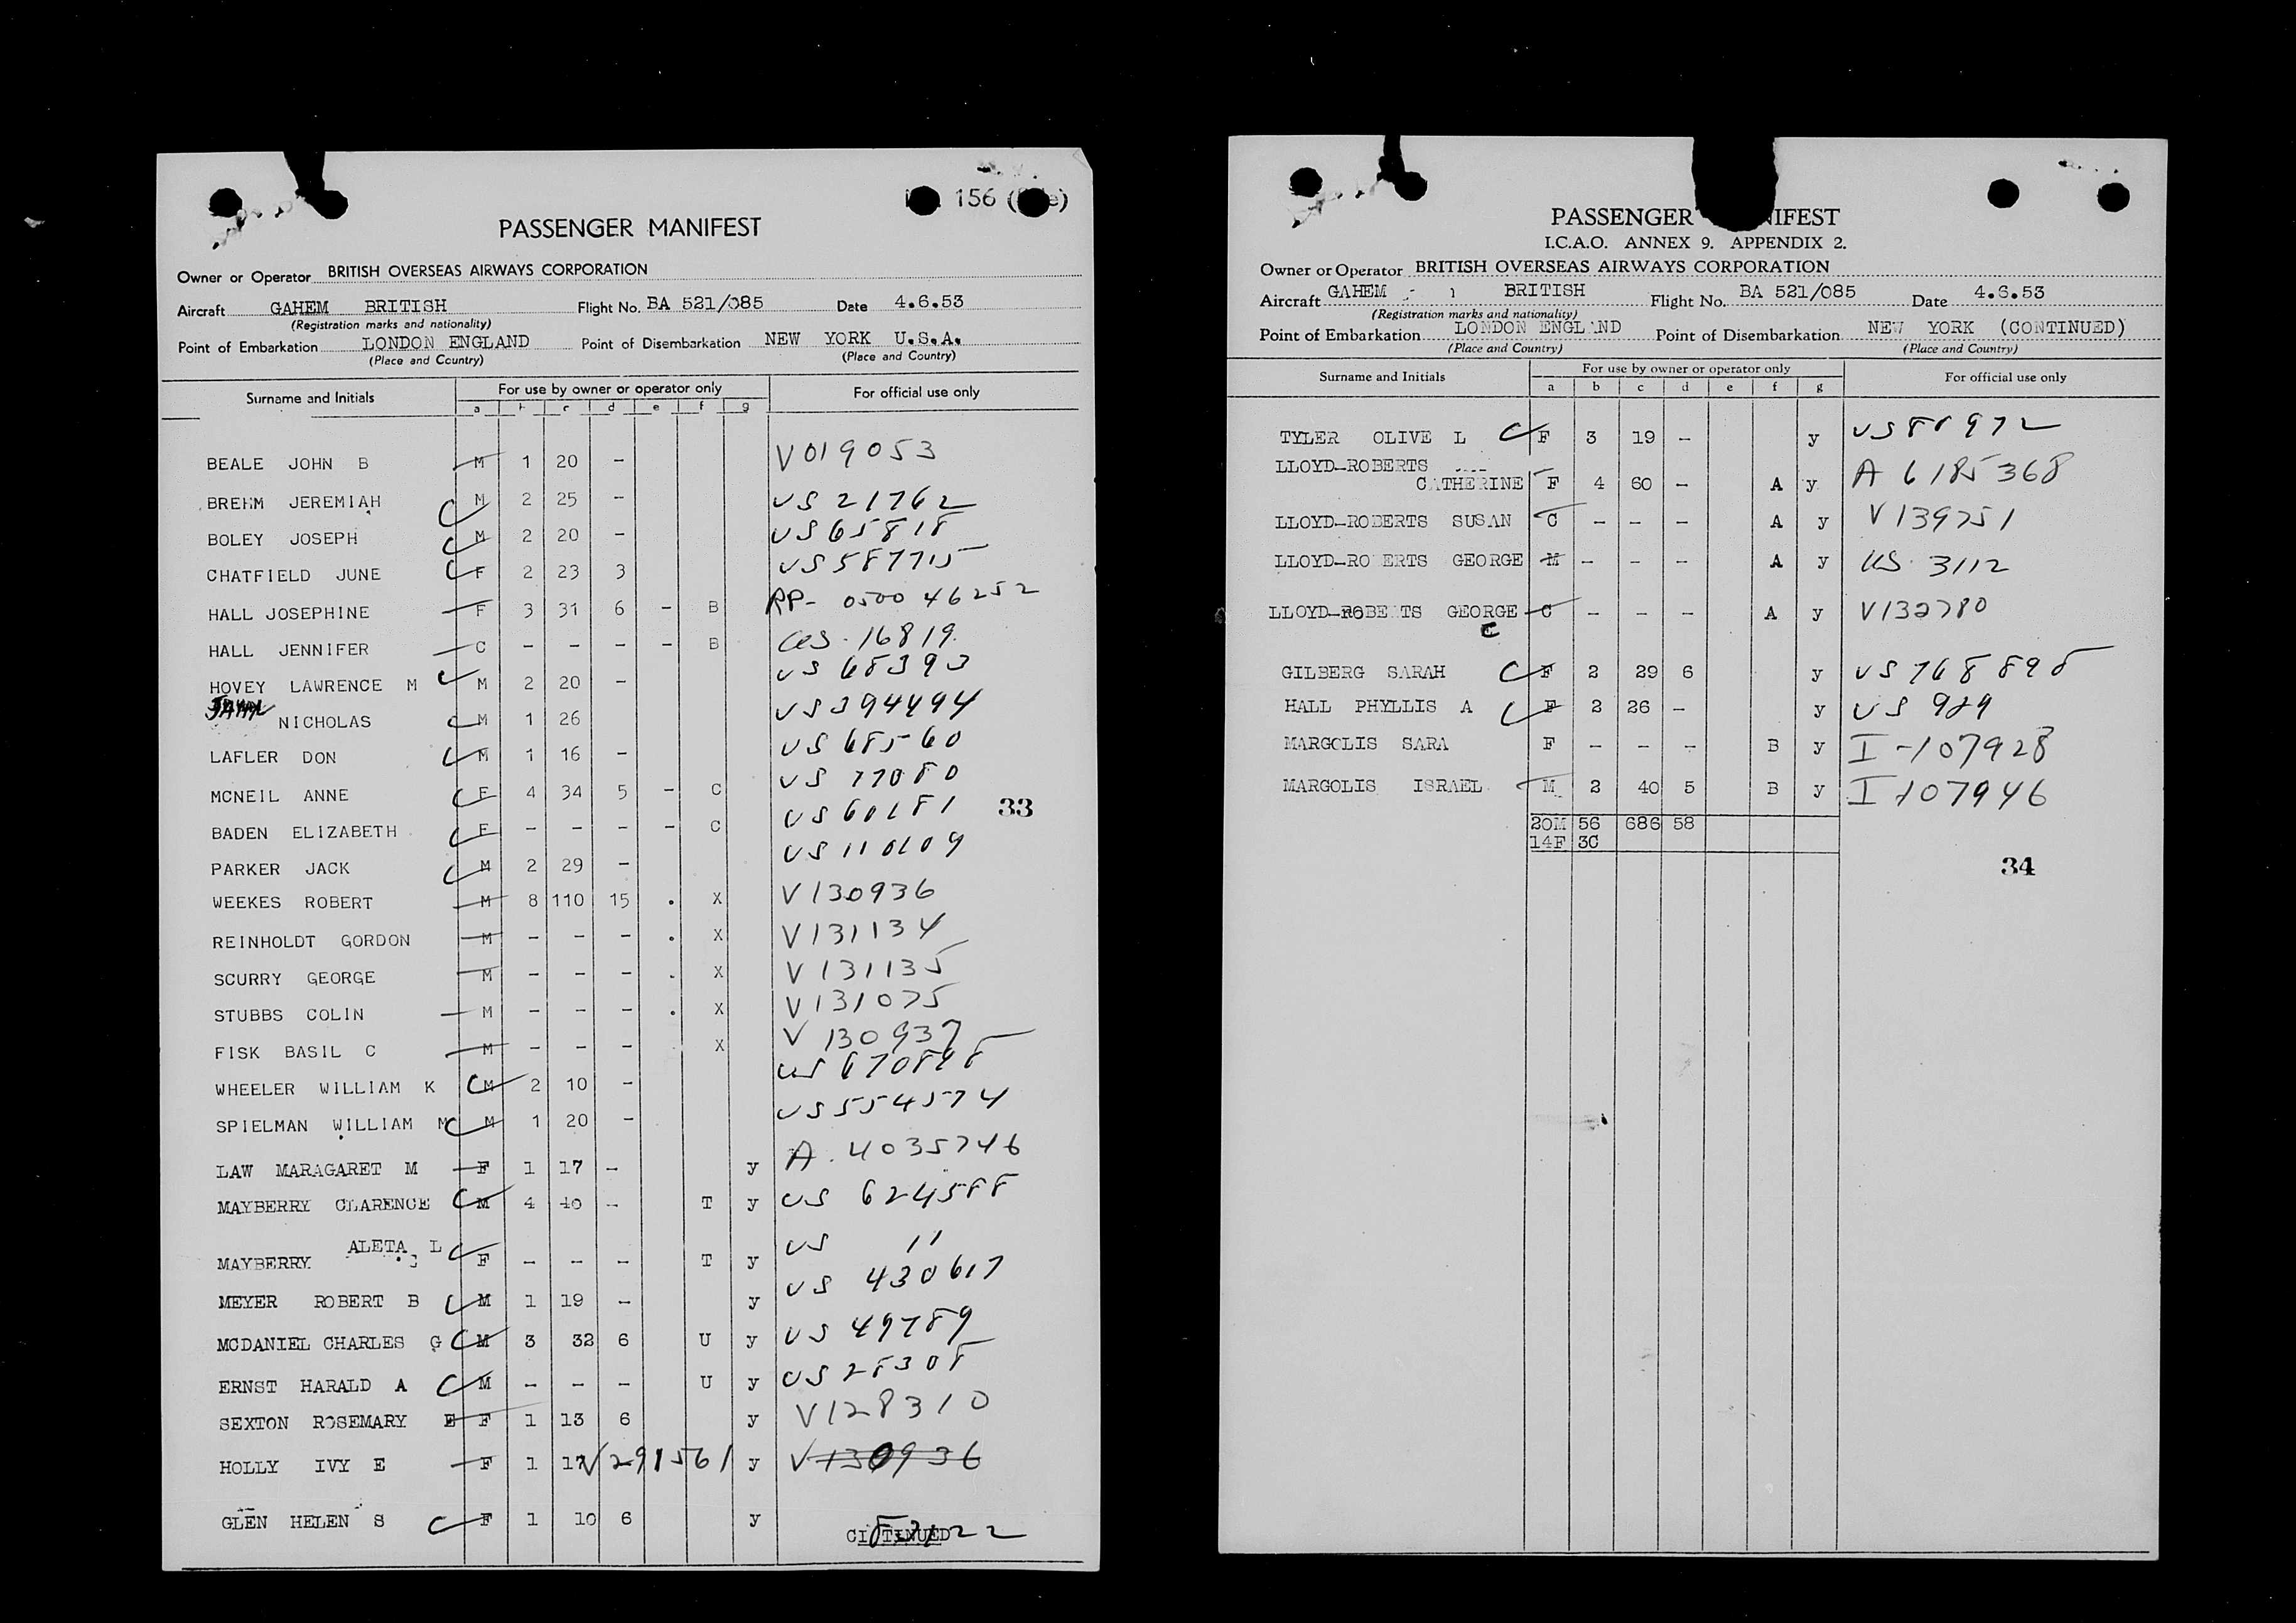 156
PASSENGER MANIFEST
Owner or Operator BRITISH OVERSEAS AIRWAYS CORPORATION
Aircraft GAHEM BRITISH Flight No. BA 521/085 Date 4.6.53
(Registration marks and nationality)
Point of Embarkation LONDON ENGLAND Point of Disembarkation NEW YORK U.S.A.
(Place and Country) (Place and Country)
Surname and Initials For use by owner or operator only For official use only
a b c d e f g
BEALE JOHN B M 1 20 - V019053
BREHM JEREMIAH C M 2 25 - US 21762
BOLEY JOSEPH C M 2 20 - US65818
CHATFIELD JUNE C F 2 23 3 US587715
HALL JOSEPHINE F 3 31 6 - B RP- 0500 46252
HALL JENNIFER C - - - - B US 16819
HOVEY LAWRENCE M C M 2 20 - US 68393
NICHOLAS C M 1 26 US394494
LAFLER DON C M 1 16 - US 68560
MCNEIL ANNE C F 4 34 5 - C US 77080
BADEN ELIZABETH C F - - - - C US 60181
33
PARKER JACK C M 2 29 - US 110109
WEEKES ROBERT M 8 110 15 . X V130936
REINHOLDT GORDON M - - - . X V131134
SCURRY GEORGE M - - - . X V131135
STUBBS COLIN M - - - . X V131075
FISK BASIL C M - - - X V 130937
WHEELER WILLIAM K C M 2 10 - US 670898
SPIELMAN WILLIAM M C M 1 20 - US554574
LAW MARAGARET M F 1 17 - y A 4035746
MAYBERRY CLARENCE C M 4 40 - T y US 624588
ALETA L C
MAYBERRY F - - - T y US 11
MEYER ROBERT B C M 1 19 - y US 430617
MCDANIEL CHARLES G C M 3 32 6 U y US 49789
ERNST HARALD A C M - - - U y US 28308
SEXTON ROSEMARY E F 1 13 6 y V128310
HOLLY IVY E F 1 17 V291561 y V130936
GLEN HELEN S C F 1 10 6 y
PASSENGER MANIFEST
I.C.A.O. ANNEX 9. APPENDIX 2.
Owner or Operator BRITISH OVERSEAS AIRWAYS CORPORATION
Aircraft GAHEM BRITISH Flight No. BA 521/085 Date 4.6.53
(Registration marks and nationality)
Point of Embarkation LONDON ENGLAND Point of Disembarkation NEW YORK (CONTINUED)
(Place and Country) (Place and Country)
Surname and Initials For use by owner or operator only For official use only
a b c d e f g
TYLER OLIVE L C F 3 19 - y US 88972
LLOYD-ROBERTS
CATHERINE F 4 60 - A y A 6185368
LLOYD-ROBERTS SUSAN C - - - A y V139751
LLOYD-ROBERTS GEORGE M - - - A y US 3112
LLOYD-ROBERTS GEORGE C - - - A y V132780
E
GILBERG SARAH C F 2 29 6 y US 768898
HALL PHYLLIS A C F 2 26 - y US 989
MARGOLIS SARA F - - - B y I-107928
MARGOLIS ISRAEL M 2 40 5 B y I 107946
20M 56 686 58
14F 3C
34